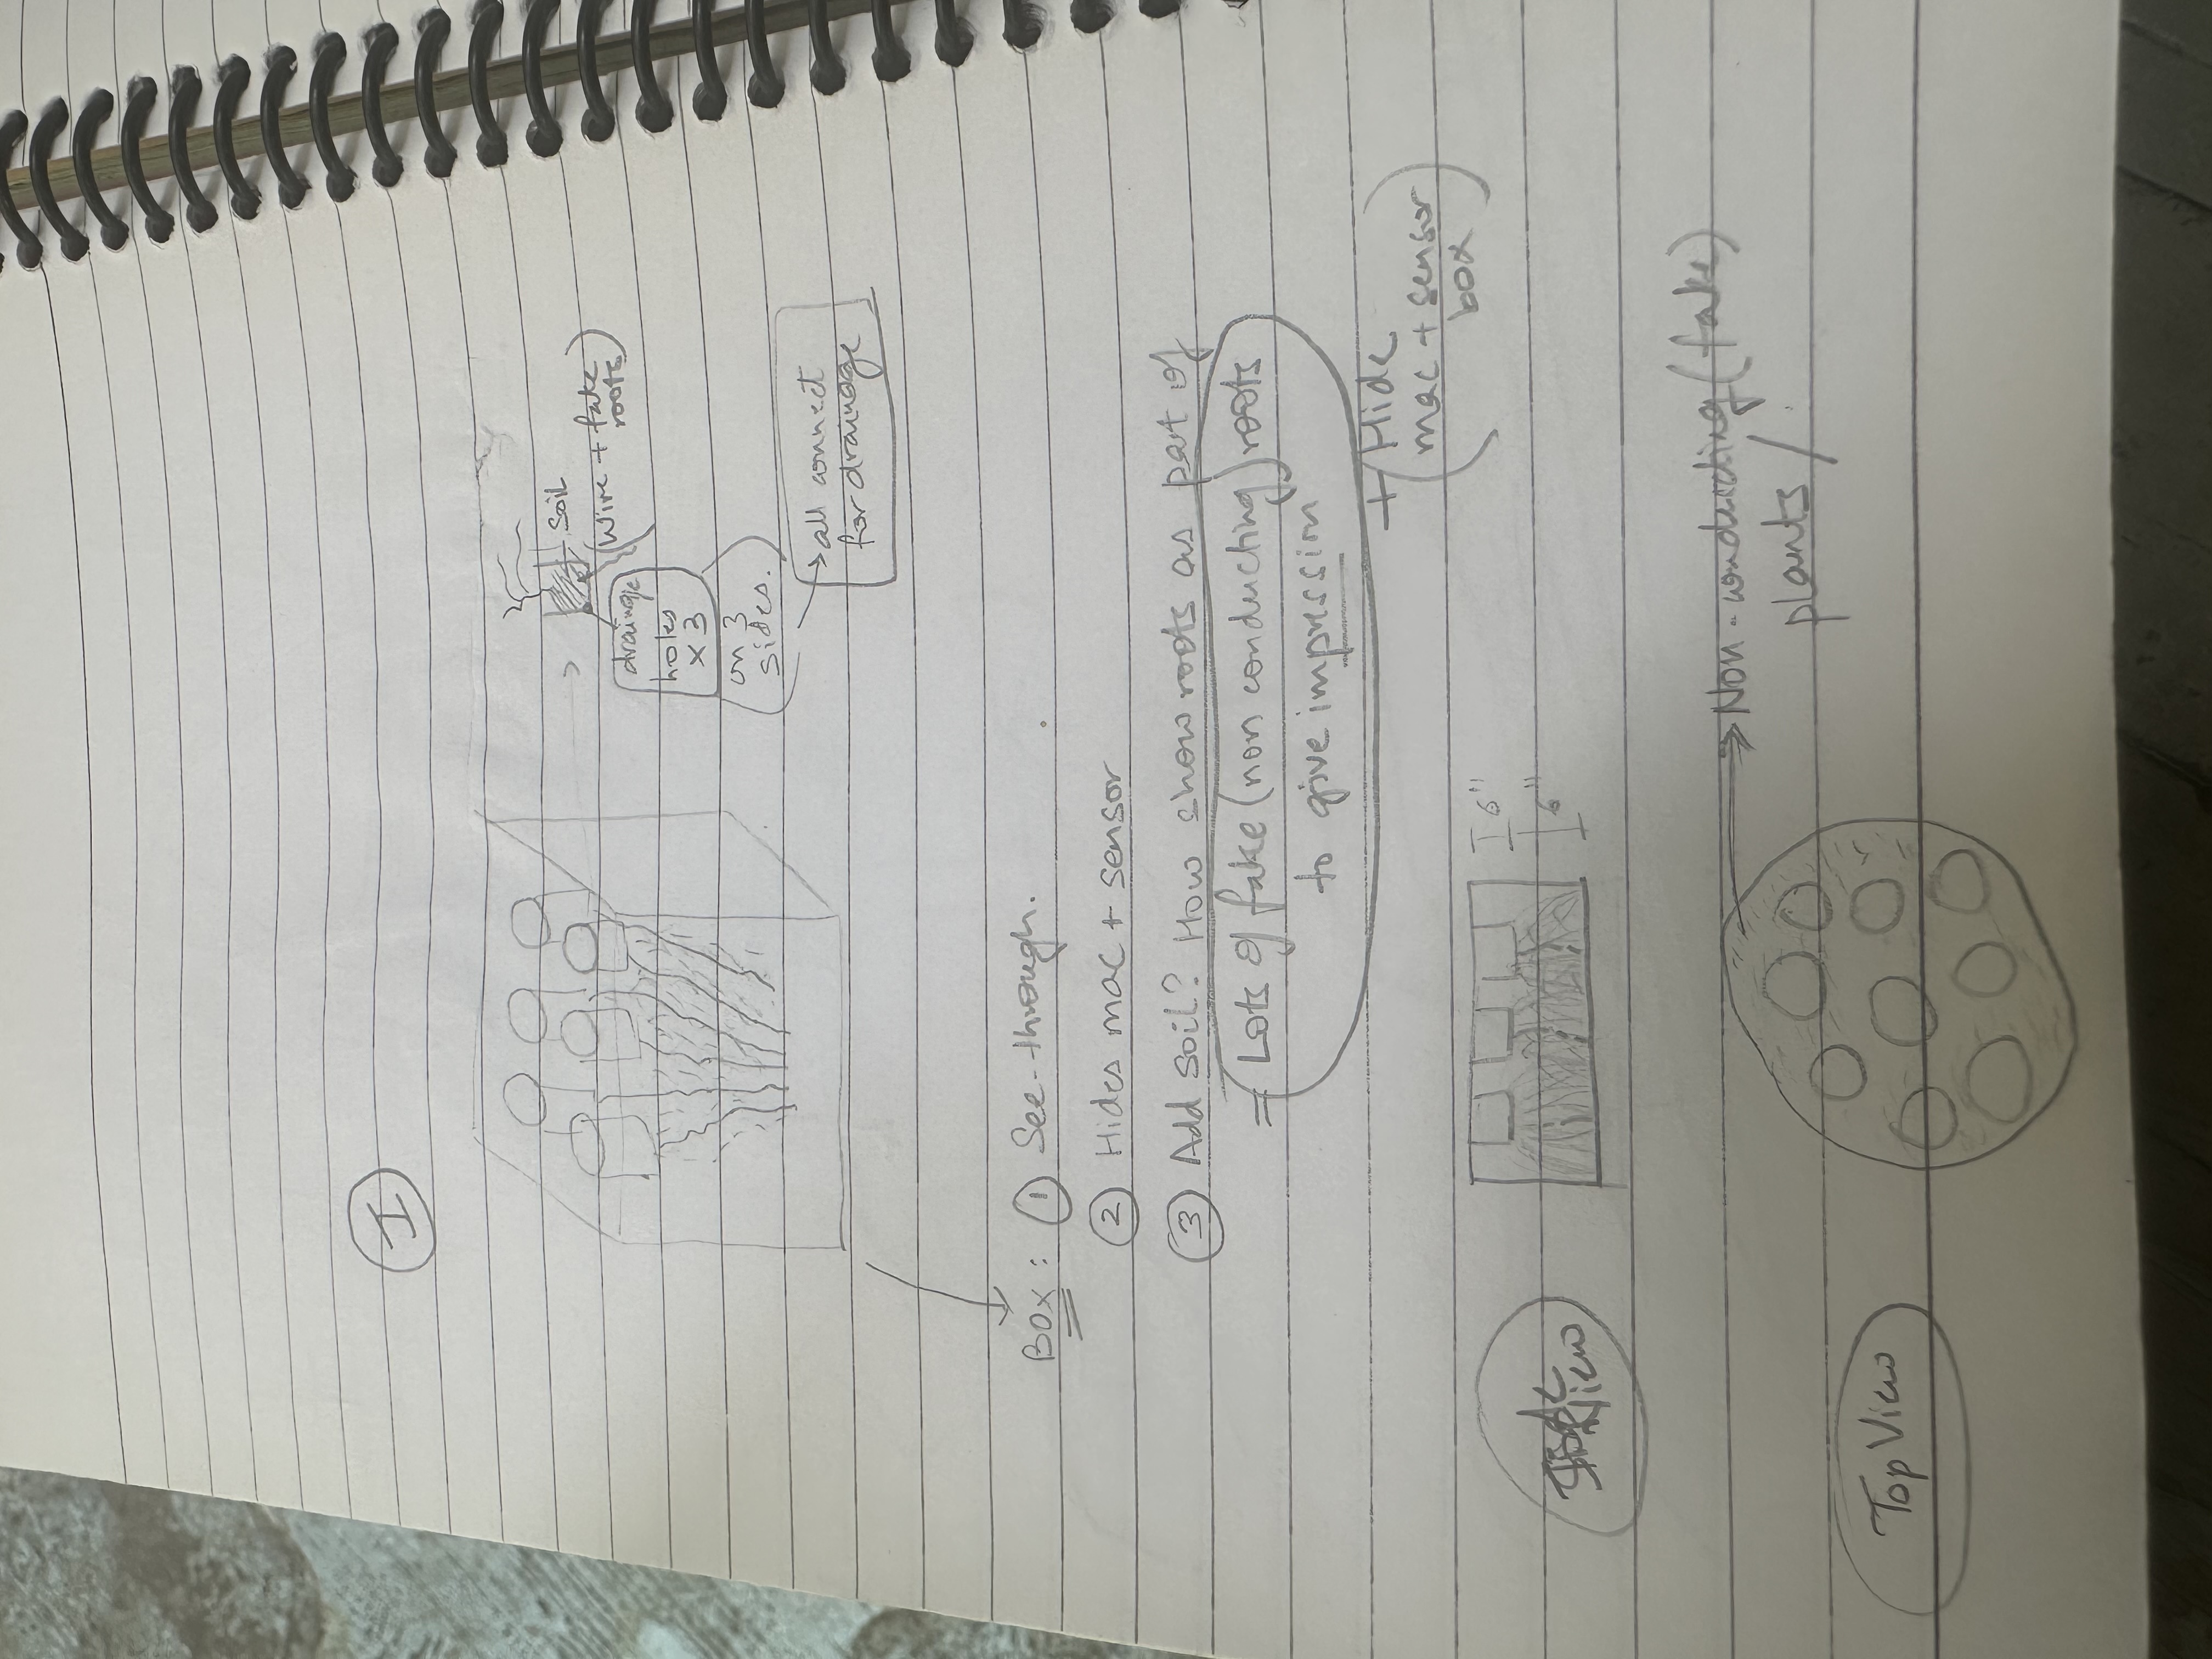 I
Soil
(Wire + fake
roots)
drainage
holes
x 3
on 3
sides.
→ all connect
for drainage
BOX: ① See-through.
② Hides mac + sensor
③ Add soil? How show roots as part of
= Lots of fake (non conducting) roots
to give impression
+ Hide
(mac + sensor
box)
6"
6"
View
→ Non-conducting (fake)
plants /
Top View